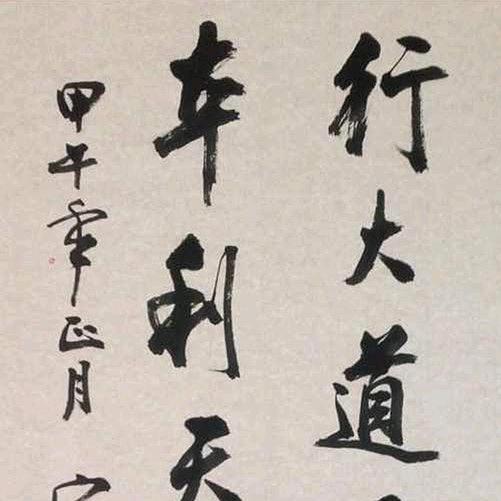 行大道
本利天
甲午年正月